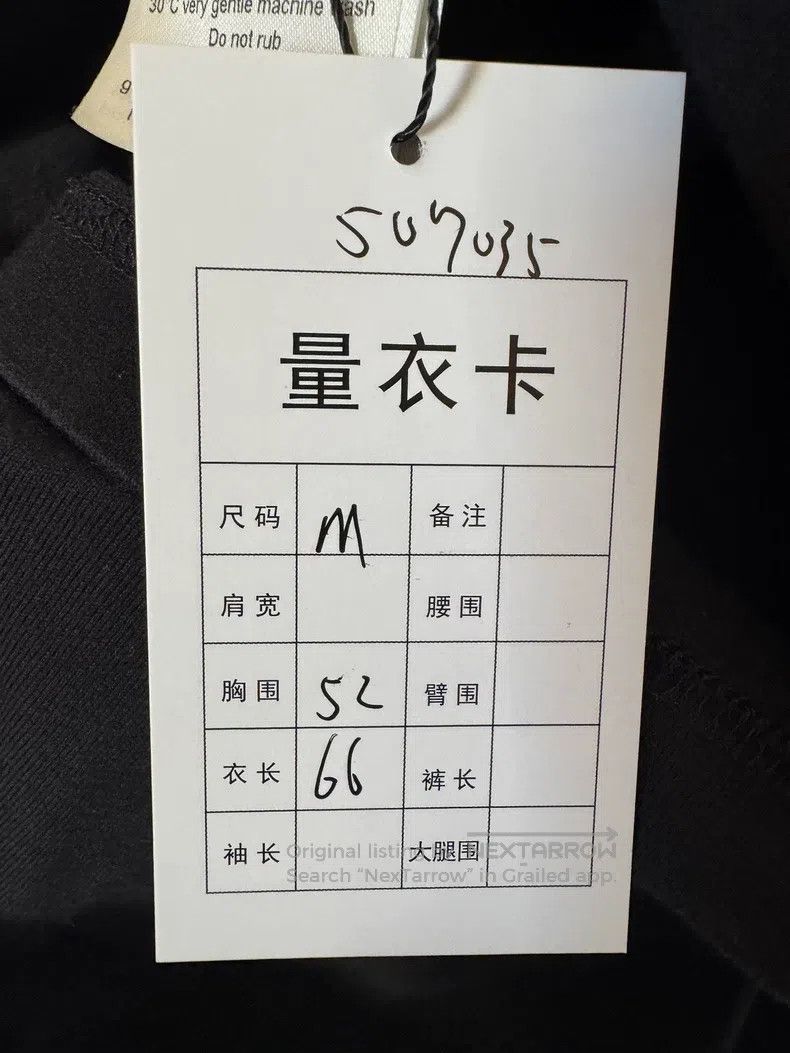 30°C very gentle machine wash
Do not rub
507035
量衣卡
尺码 M 备注
肩宽 腰围
胸围 52 臂围
衣长 66 裤长
袖长 大腿围
Original listing by NEXTARROW
Search “NexTarrow” in Grailed app.